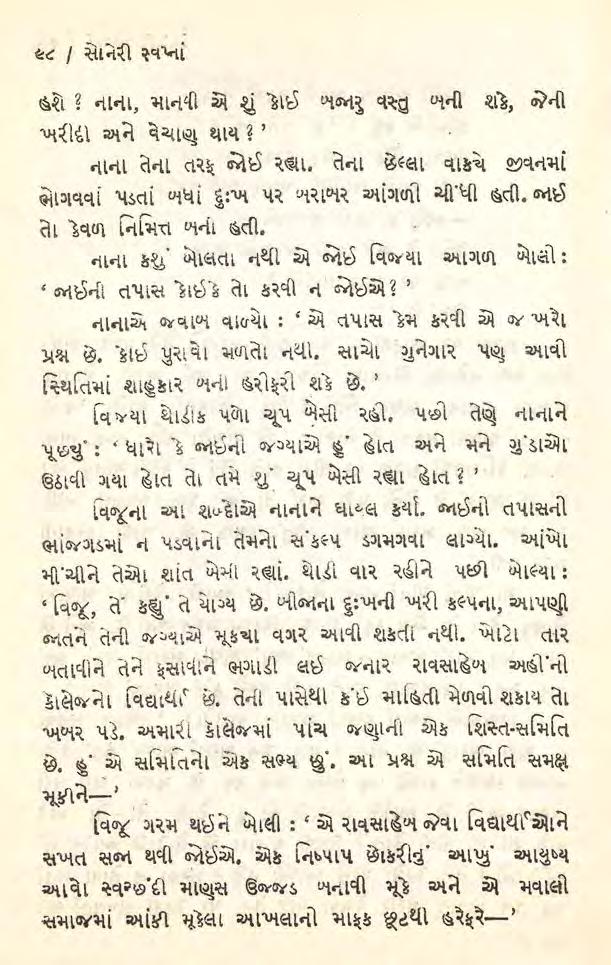 ૯૮ / સોનેરી સ્વપ્નાં
હશે ? નાના, માનવી એ શું કોઈ બજારુ વસ્તુ બની શકે, જેની
ખરીદી અને વેચાણ થાય ? ’
નાના તેના તરફ જોઈ રહ્યા. તેના છેલ્લા વાક્યે જીવનમાં
ભોગવવાં પડતાં બધાં દુઃખ પર બરાબર આંગળી ચીંધી હતી. જાઈ
તો કેવળ નિમિત્ત બની હતી.
નાના કશું બોલતા નથી એ જોઈ વિજયા આગળ બોલી :
‘ જાઈની તપાસ કોઈકે તો કરવી ન જોઈએ ? ’
નાનાએ જવાબ વાળ્યો : ‘ એ તપાસ કેમ કરવી એ જ ખરો
પ્રશ્ન છે. કોઈ પુરાવો મળતો નથી. સાચો ગુનેગાર પણ આવી
સ્થિતિમાં શાહુકાર બની હરીફરી શકે છે. ’
વિજયા થોડીક પળો ચૂપ બેસી રહી. પછી તેણે નાનાને
પૂછ્યું : ‘ ધારો કે જાઈની જગ્યાએ હું હોત અને મને ગુંડાઓ
ઉઠાવી ગયા હોત તો તમે શું ચૂપ બેસી રહ્યા હોત ? ’
વિજૂના આ શબ્દોએ નાનાને ઘાયલ કર્યા. જાઈની તપાસની
ભાંજગડમાં ન પડવાનો તેમનો સંકલ્પ ડગમગવા લાગ્યો. આંખો
મીંચીને તેઓ શાંત બેસી રહ્યાં. થોડી વાર રહીને પછી બોલ્યા :
‘ વિજૂ, તેં કહ્યું તે યોગ્ય છે. બીજાના દુઃખની ખરી કલ્પના, આપણી
જાતને તેની જગ્યાએ મૂક્યા વગર આવી શકતી નથી. ખોટો તાર
બતાવીને તેને ફસાવીને ભગાડી લઈ જનાર રાવસાહેબ અહીંની
કૉલેજનો વિદ્યાર્થી છે. તેની પાસેથી કંઈ માહિતી મેળવી શકાય તો
ખબર પડે. અમારી કૉલેજમાં પાંચ જણાની એક શિસ્ત-સમિતિ
છે. હું એ સમિતિનો એક સભ્ય છું. આ પ્રશ્ન એ સમિતિ સમક્ષ
મૂકીને—’
વિજૂ ગરમ થઈને બોલી : ‘ એ રાવસાહેબ જેવા વિદ્યાર્થીઓને
સખત સજા થવી જોઈએ. એક નિષ્પાપ છોકરીનું આખું આયુષ્ય
આવો સ્વચ્છંદી માણસ ઉજ્જડ બનાવી મૂકે અને એ મવાલી
સમાજમાં આંકી મૂકેલા આખલાની માફક છૂટથી હરેફરે—’